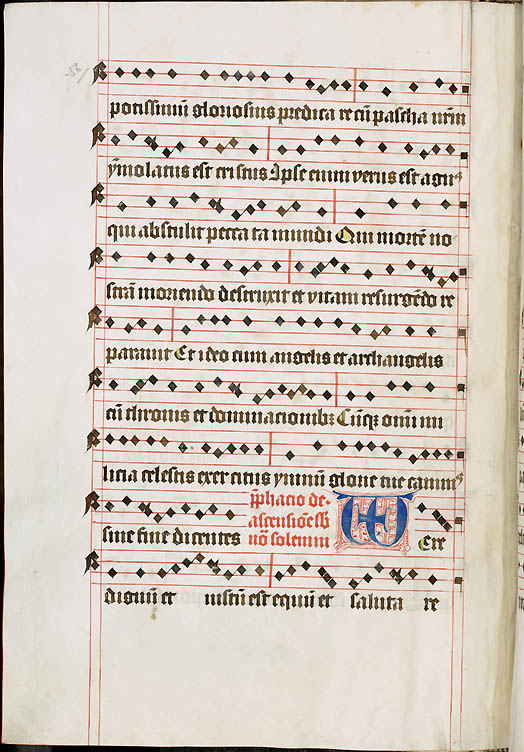 56
potissimū gloriosius predica re cū pascha nr̄m
ẏmolatus est cristus Ipse enim verus est agnꝰ
qui abstulit pecca ta mundi Qui mortē no
strā moriendo destruxit et vitam resurgēdo re
parauit Et ideo cum angelis et archangelis
cū thronis et dominacionibꝫ Cūqꝫ omī mi
licia celestis exer citus ymnū glorie tue canimꝰ
sine fine dicentes
p̄phacio de
ascensiōe sb
nō solenni
Ere
dignū et iustū est equū et saluta re